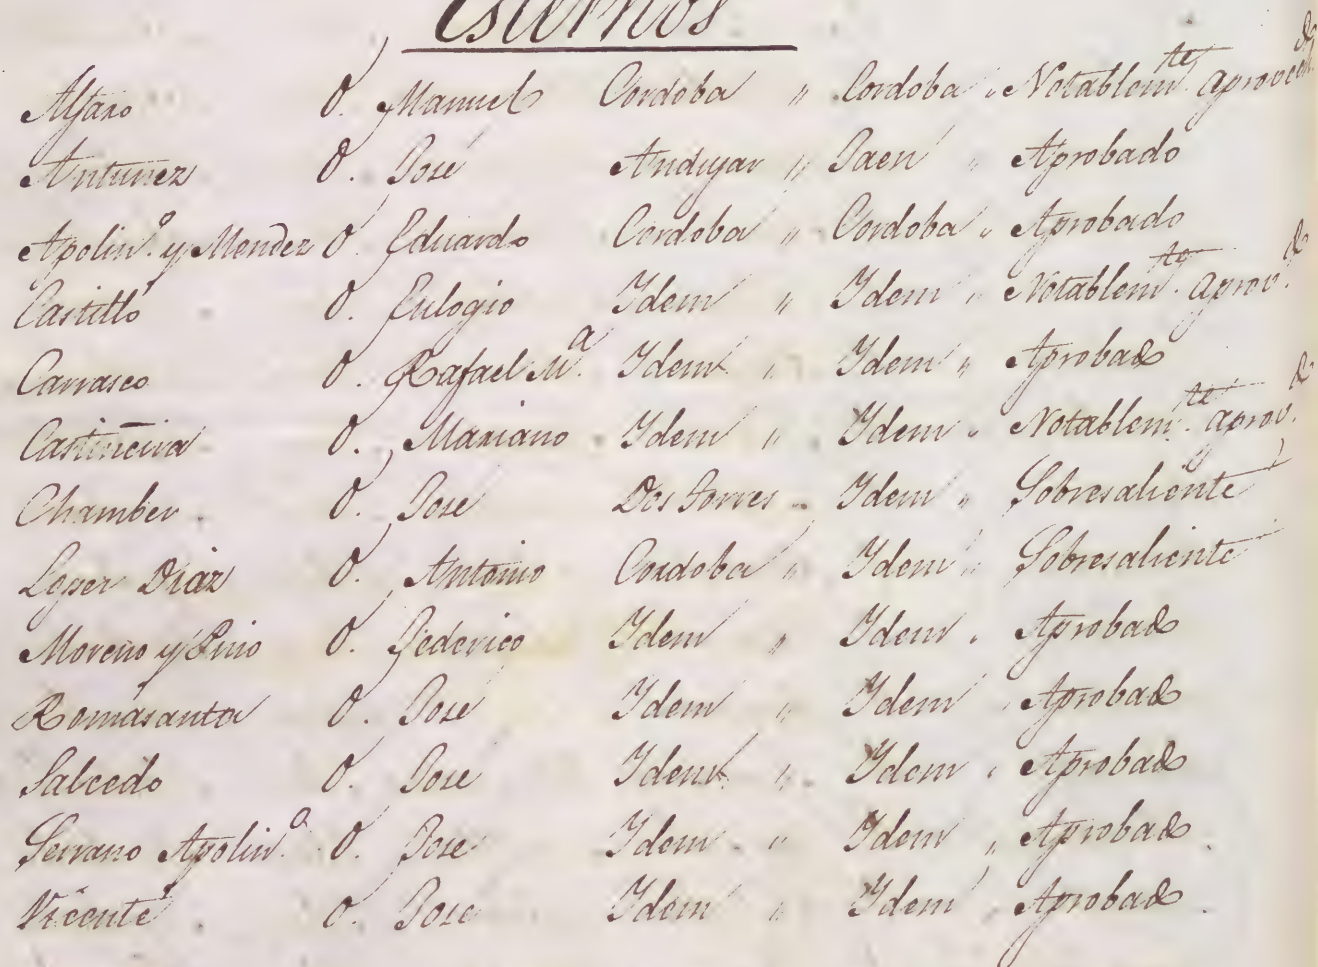 Esternos
Alfaro D. Manuel Cordoba " Cordoba " Notablem.te aprovech.do
Antunez D. José Andujar " Jaen " Aprobado
Apolin.o y Mendez D. Eduardo Cordoba " Cordoba " Aprobado
Castillo D. Eulogio Idem " Idem " Notablem.te aprov.do
Carrasco D. Rafael M.a Idem " Idem " Aprobado
Castiñeira D. Mariano Idem " Idem " Notablem.te aprov.do
Chamber D. José Dos Torres " Idem " Sobresaliente
Diaz D. Antonio Cordoba " Idem " Sobresaliente
Moreno y Pino D. Federico Idem " Idem " Aprobado
Romasanta D. José Idem " Idem " Aprobado
Salcedo D. José Idem " Idem " Aprobado
Serrano Apolin.o D. José Idem " Idem " Aprobado
Vicente D. José Idem " Idem " Aprobado